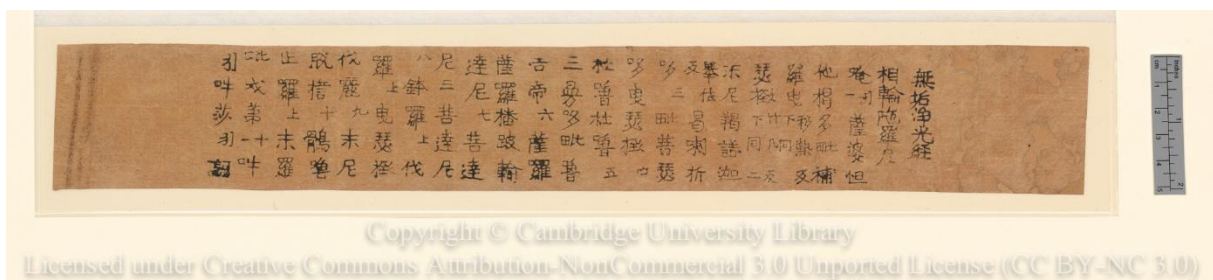 無垢淨光經
相輪陁羅尼
唵引一薩婆怛
他揭多毗補
羅曳移熱反下同
瑟下同二
末尼羯諾迦
曷剌折
哆三毗菩瑟
哆曳瑟四
杜嚕杜嚕五
三曼哆毗嚕
吉帝六薩羅
薩羅播跛輸
達尼七菩達
尼三菩達尼
八鉢羅上伐
羅上曳瑟
伐麗九末尼
脫誓十鶻嚕
止羅上末羅
毗戍第十一吽
引吽莎引訶
Copyright © Cambridge University Library
Licensed under Creative Commons Attribution-NonCommercial 3.0 Unported License (CC BY-NC 3.0)